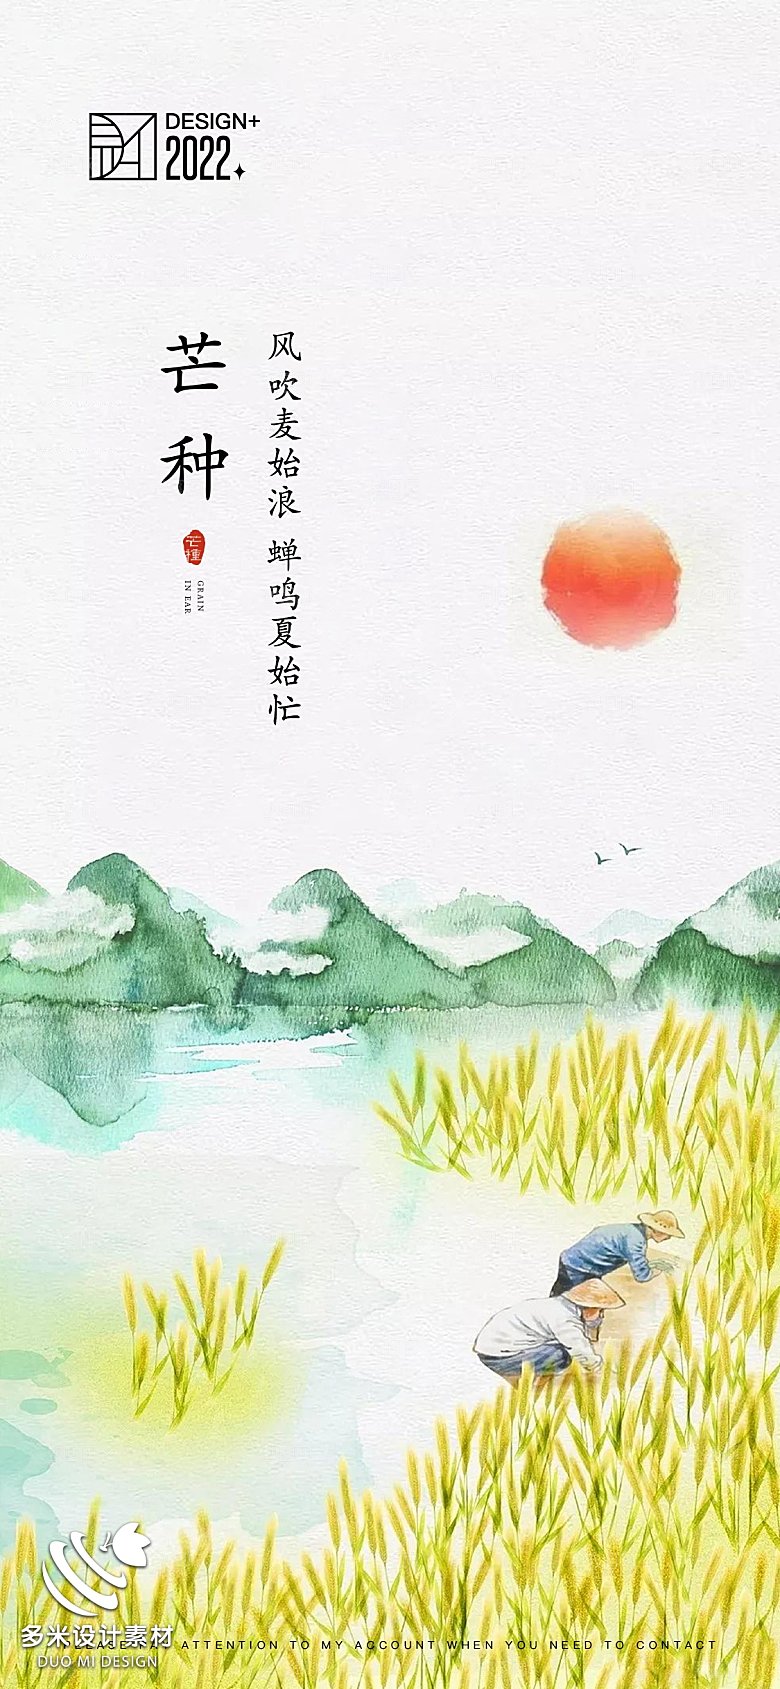 DESIGN+
2022
芒种
风吹麦始浪 蝉鸣夏始忙
芒種
GRAIN
IN EAR
多米设计素材
DUO MI DESIGN
ATTENTION TO MY ACCOUNT WHEN YOU NEED TO CONTACT